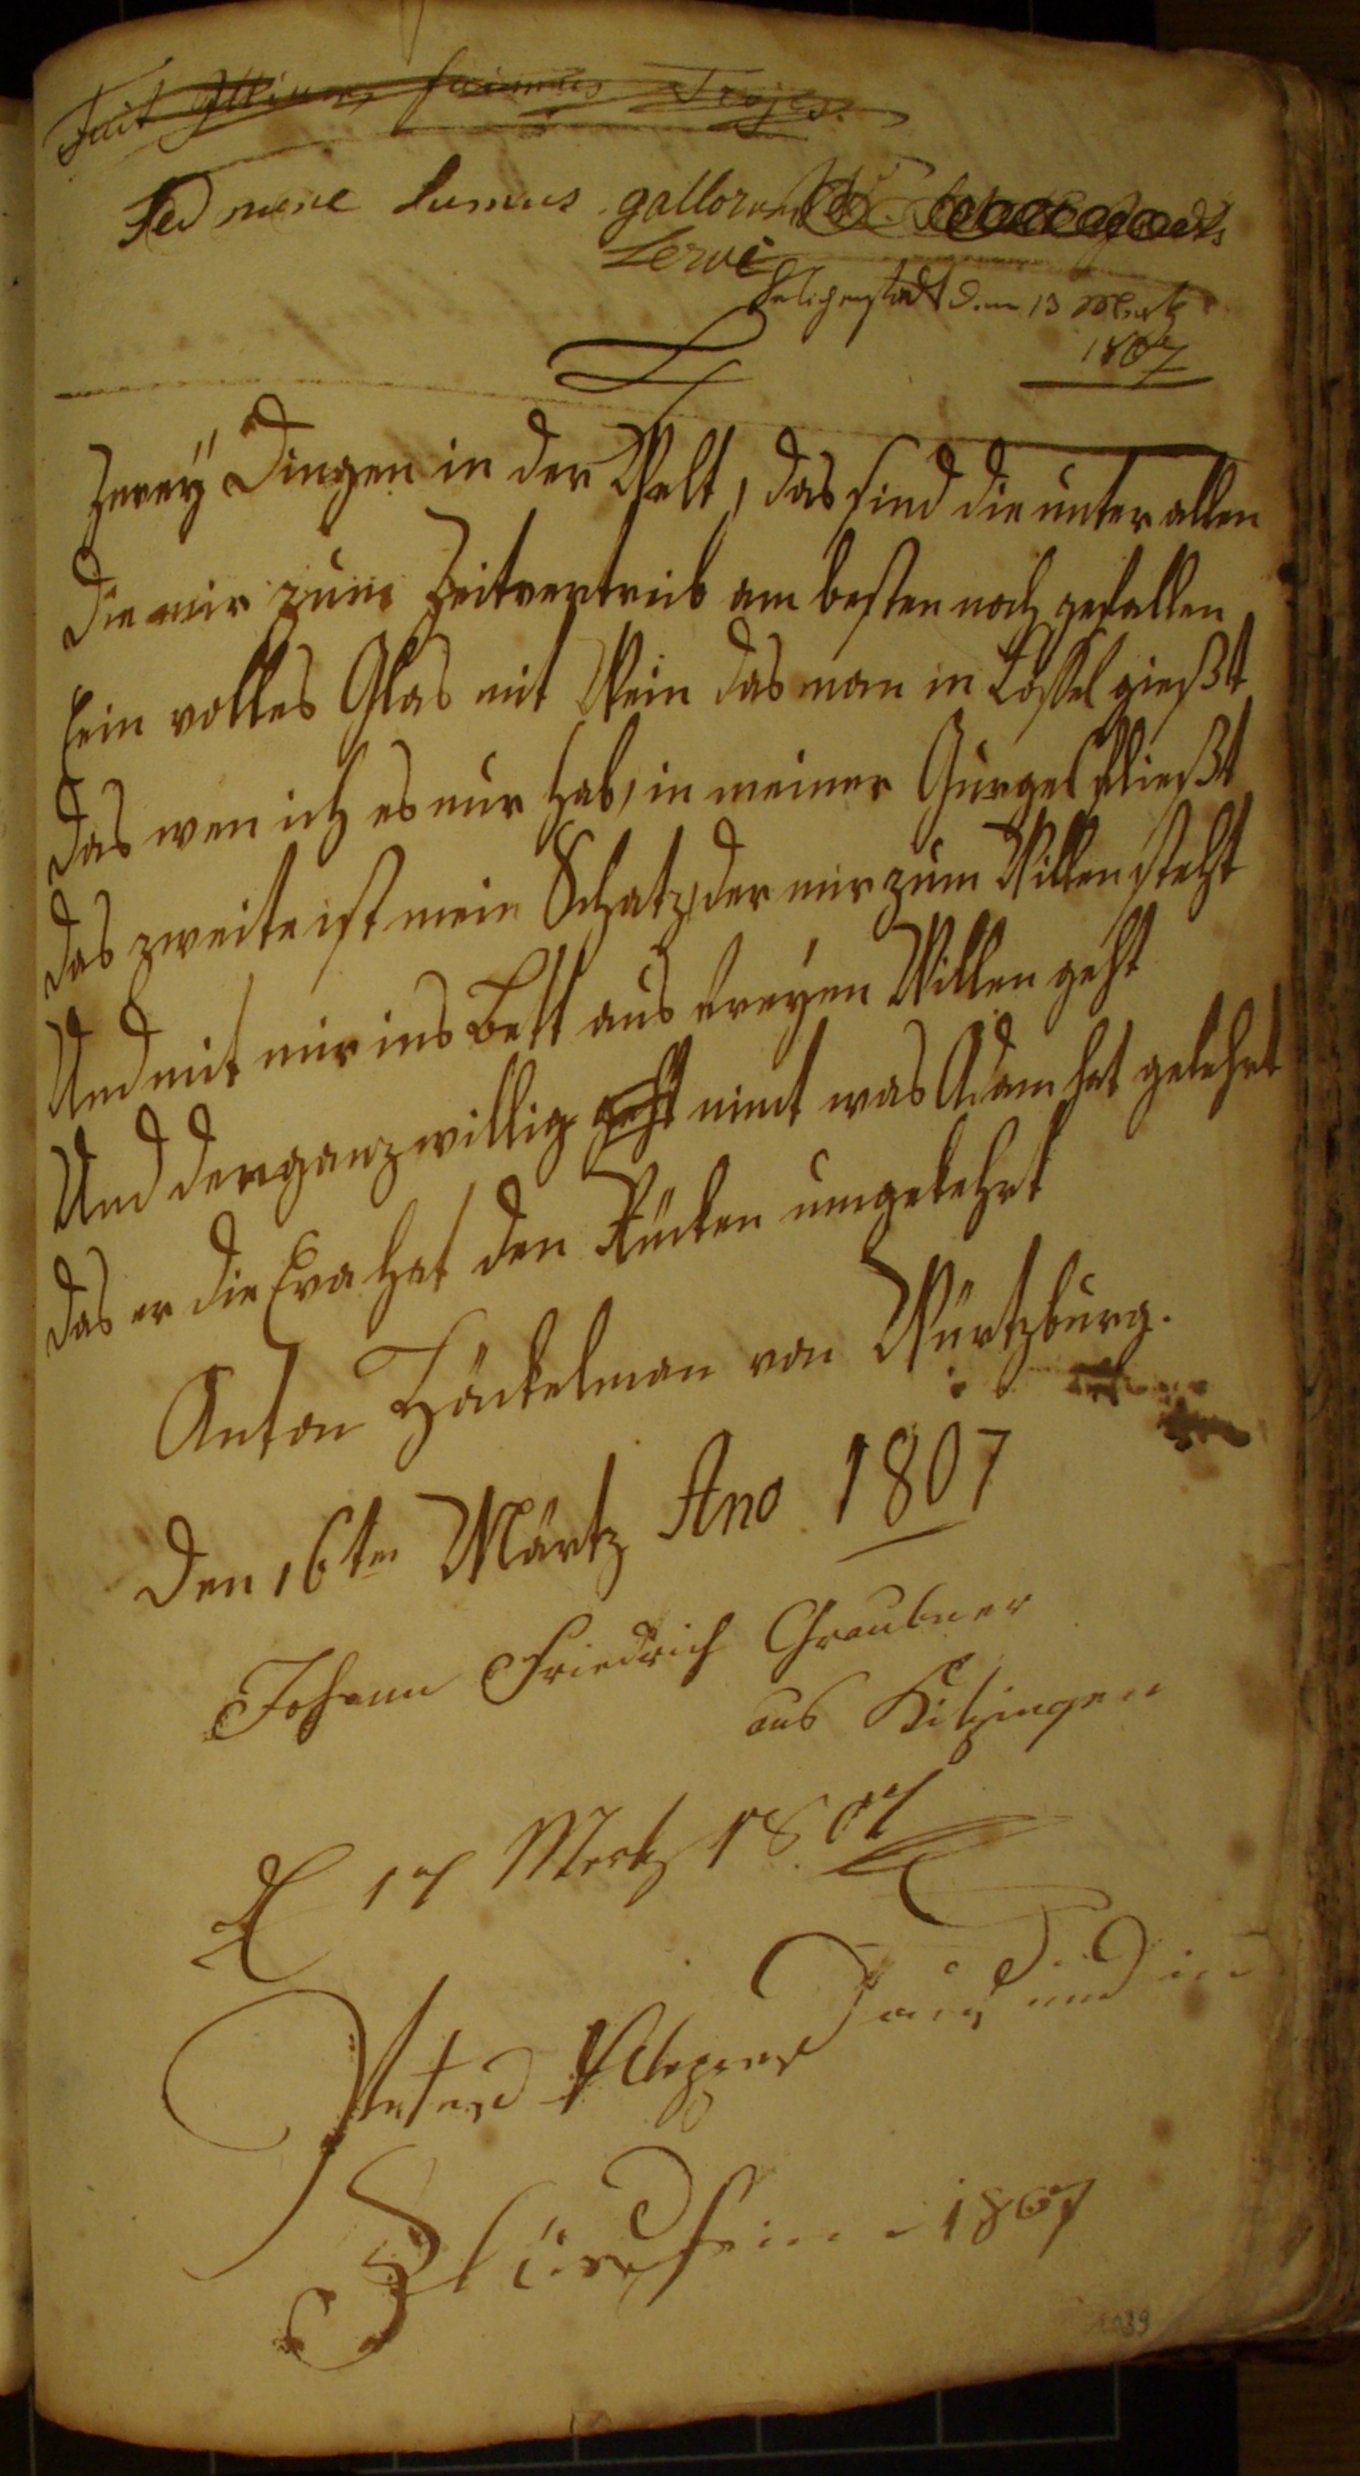 Fuit Illium, fuimus Trojes.
Sed nunc sumus gallorum
servi
Seligenstadt den 13 Mertz
1807
Zweÿ Dingen in der Welt, das sind die unter allen
Die mir zum Zeitvertreib am besten noch gefallen
Ein volles Glas mit Wein das man in Löffel gießt
Das wen ich es nur hab, in meiner Gurgel fließt
Das zweite ist mein Schatz, der mir zum Willen steht
Und mit mir ins Bett aus freÿen Willen geht
Und der ganz willig geht nimt was Adam hat gelehrt
Das er die Eva hat den Rücken umgekehrt
Anton Höckelman von Würtzburg.
Den 16ten Märtz Ano 1807
Johann Friedrich Graubner
aus Kitzingen
D 17 Mertz 1807
Peter
1807
1039